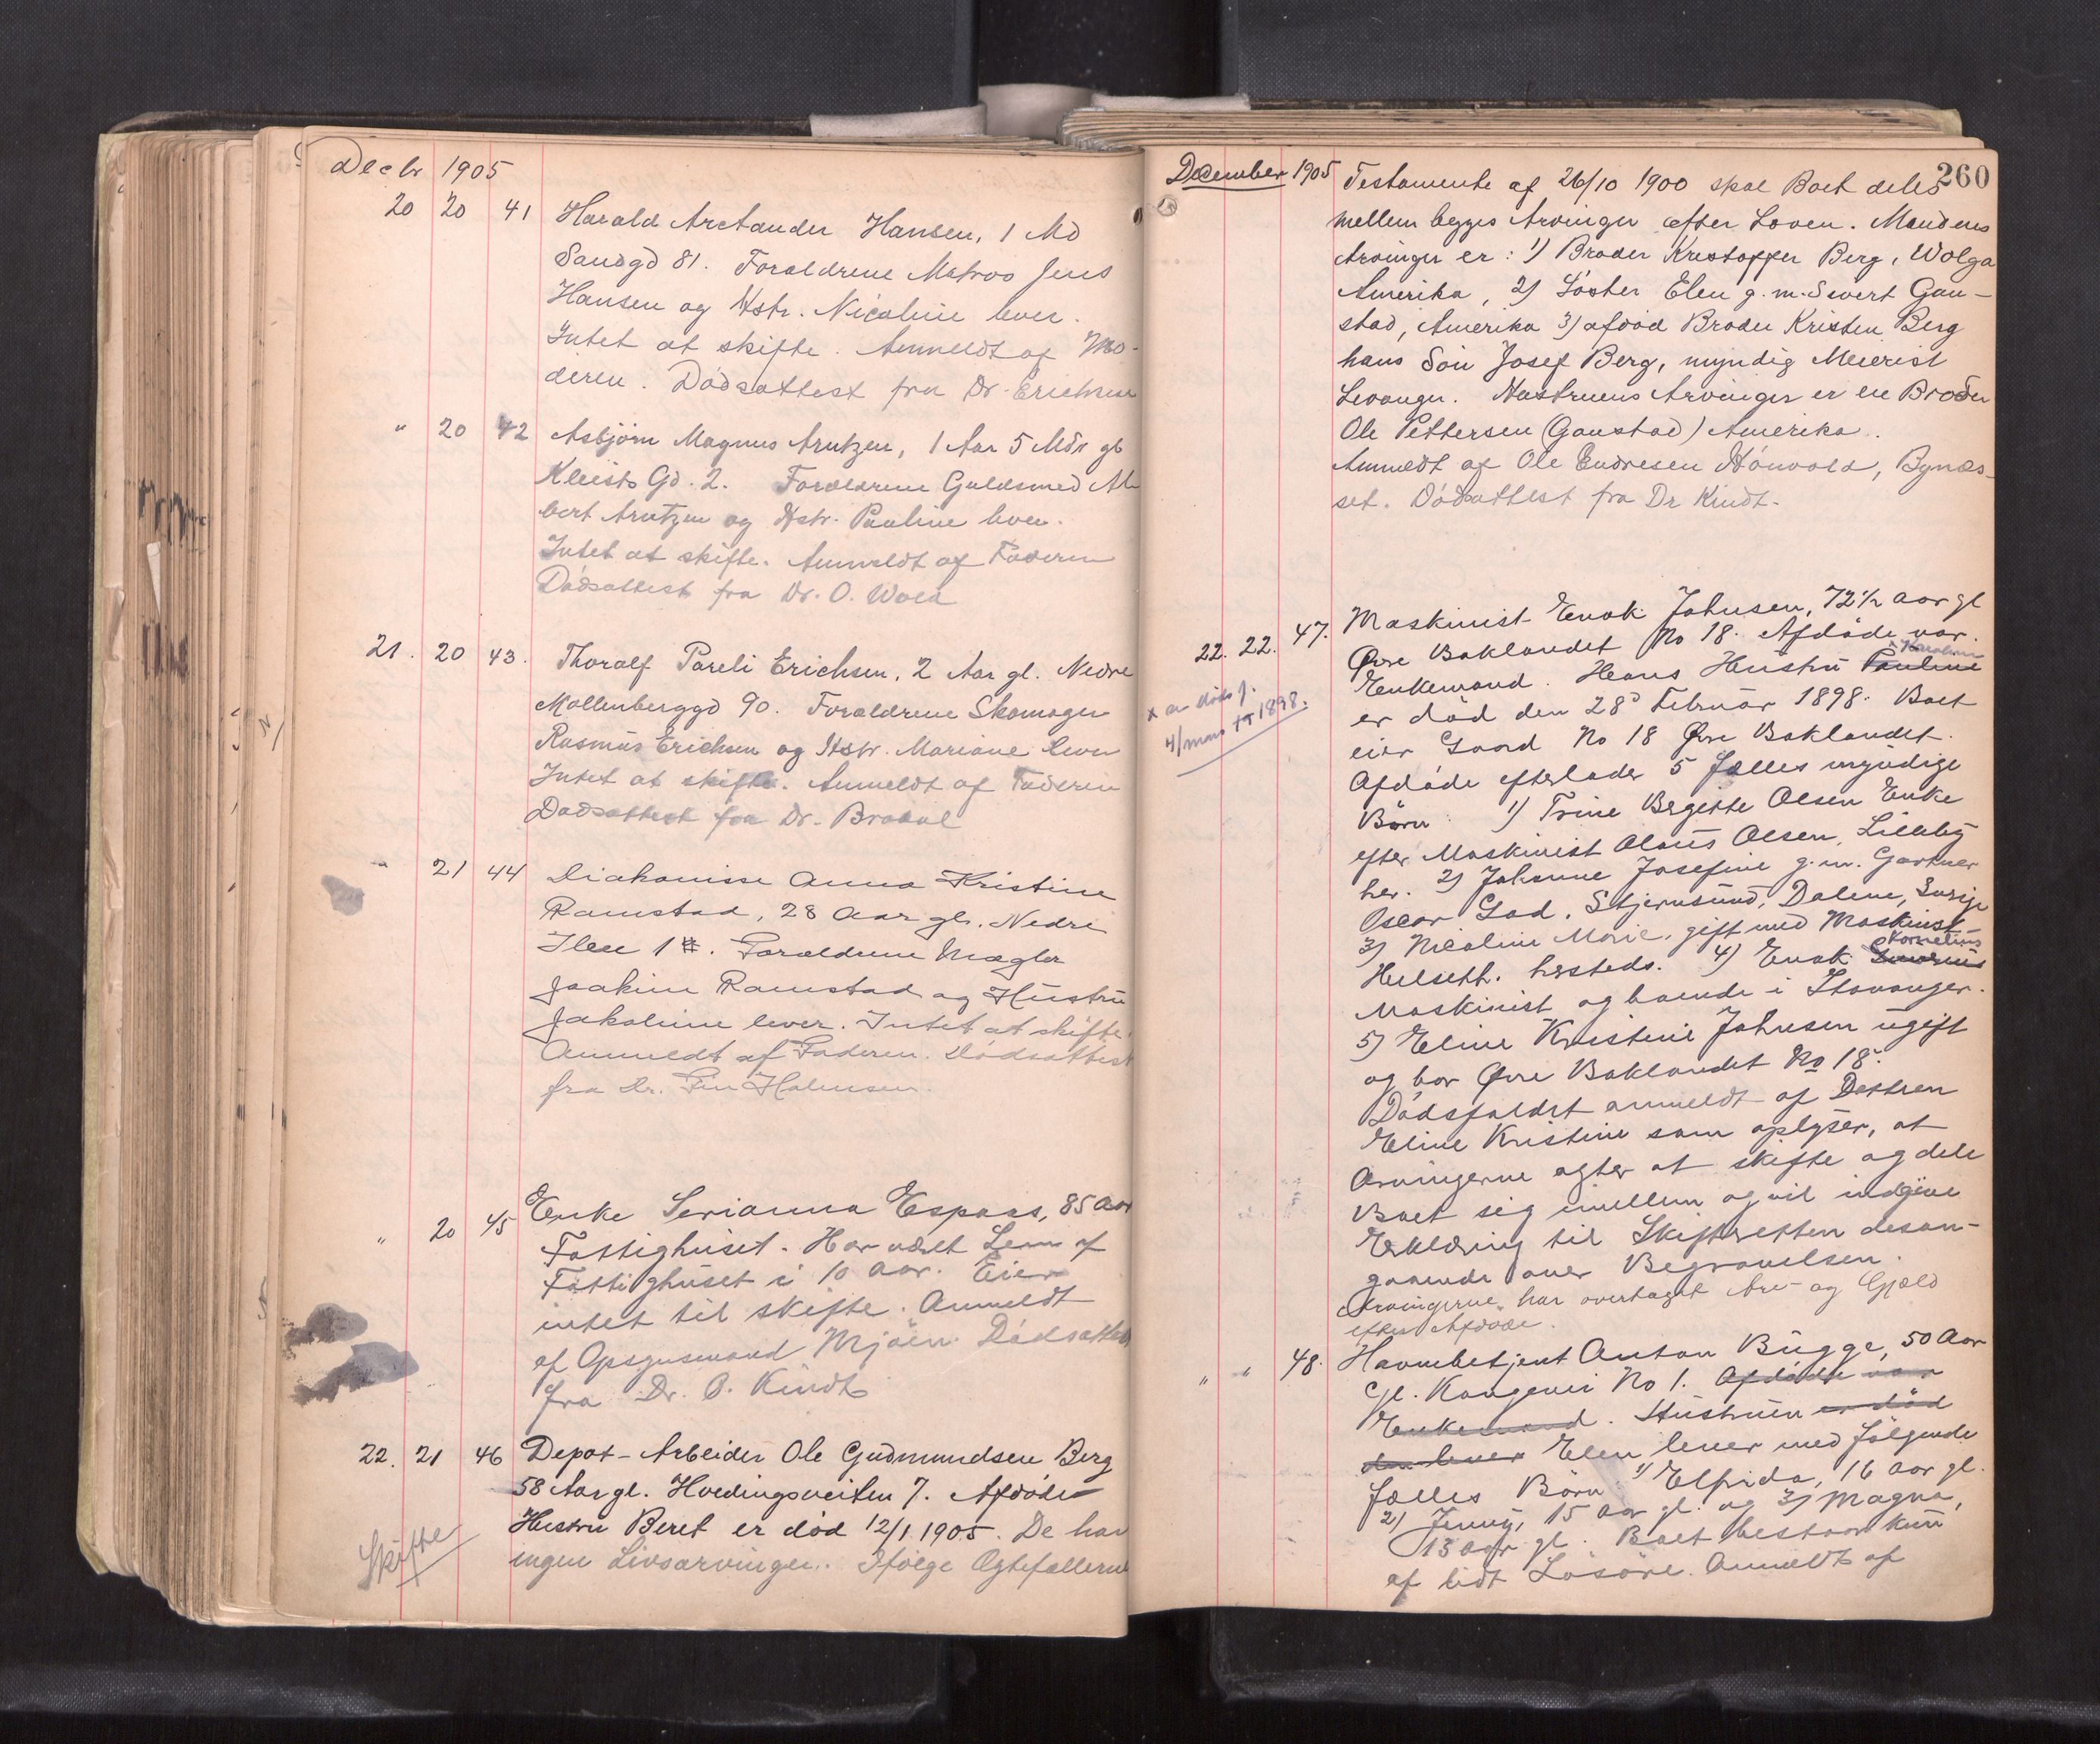 Decbr 1905
20 20 41 Harald Arctander Hansen, 1 Md
Sandgd 81. Forældrene Matros Jens
Hansen og Hstr. Nicoline lever.
Intet at skifte. Anmeldt af Mo-
deren. Dödsattest fra Dr. Erichsen
" 20 42 Asbjörn Magnus Arntzen, 1 Aar 5 Mdr gl
Kleists Gd. 2. Forældrene Guldsmed Al-
bert Arntzen og Hstr. Pauline lever.
Intet at skifte. Anmeldt af Faderen
Dödsattest fra Dr. O. Wold
21. 20 43. Thoralf Pareli Erichsen, 2 Aar gl. Nedre
Möllenberggd 90. Forældrene Skomager
Rasmus Erichsen og Hstr. Mariane lever
Intet at skifte. Anmeldt af Faderen
Dödsattest fra Dr.
" 21 44 Diakonisse Anna Kristine
Ramstad, 28 Aar gl. Nedre
Ilen 1. Forældrene Mægler
Joakim Ramstad og Hustru
Jakobine lever. Intet at skifte.
Anmeldt af Faderen. Dödsattest
fra Dr. Fin Holmsen.
" 20 45 Enke Serianna Espaas, 85 Aar
Fattighuset. Har været Lem af
Fattighuset i 10 Aar. Eier
intet til skifte. Anmeldt
af Opsynsmand Mjöen. Dödsattest
fra Dr. O. Kindt
22. 21 46 Depot-Arbeider Ole Gudmundsen Berg
58 Aar gl. Hvedingsveiten 7. Afdödes
Hustru Beret er död 12/1 1905. De har
Skifte
ingen Livsarvinger. Ifölge Ægtefællernes
December 1905 260
Testamente af 26/10 1900 skal Boet deles
mellem begges Arvinger efter Loven. Mandens
Arvinger er: 1) Broder Kristoffer Berg, Wolga
Amerika, 2) Söster Elen g.m. Sivert Gau-
stad, Amerika 3) afdöd Broder Kristen Berg
hans Sön Josef Berg, myndig Meierist
Levanger. Hustruens Arvinger er en Broder
Ole Pettersen (Gaustad) Amerika.
Anmeldt af Ole Endresen Hönvold, Bynæs-
set. Dödsattest fra Dr Kindt.
22. 22. 47. Maskinist Enok Johnsen, 72 1/2 Aar gl
Övre Baklandet No 18. Afdöde var
Enkemand. Hans Hustru Pauline
er död den 28d Februar 1898. Boet
4/mars 1898.
eier Gaard No 18 Övre Baklandet.
Afdöde efterlader 5 fælles myndige
Börn: 1) Trine Bergitte Olsen Enke
efter Maskinist Olaus Olsen, Lilleby
her. 2) Johanne Josefine g.m. Gartner
Oscar Gad, Stjernsund, Dalene, Sverje
3) Nicoline Marie, gift med Maskinist
Kornelius
Helseth. hersteds. 4) Enok
Maskinist og boende i Stavanger.
5) Eline Kristine Johnsen ugift
og bor Övre Baklandet No 18.
Dödsfaldet anmeldt af Datteren
Eline Kristine som oplyser, at
Arvingerne agter at skifte og dele
Boet sig imellem og vil indgive
Erklæring til Skifteretten desan-
gaaende over Begravelsen.
Arvingerne har overtaget Arv og Gjæld
efter Afdöde.
" " 48. Havnebetjent Anton Bugge, 50 Aar
gl. Kongens No 1. Afdöde var
Enkemand. Hustruen er död
den lever Elen lever med fölgende
fælles Börn: 1) Elfrida, 16 aar gl.
2) Jenny, 15 Aar gl. og 3) Magna,
13 aar gl. Boet bestaar kun
af lidt Lösöre. Anmeldt af